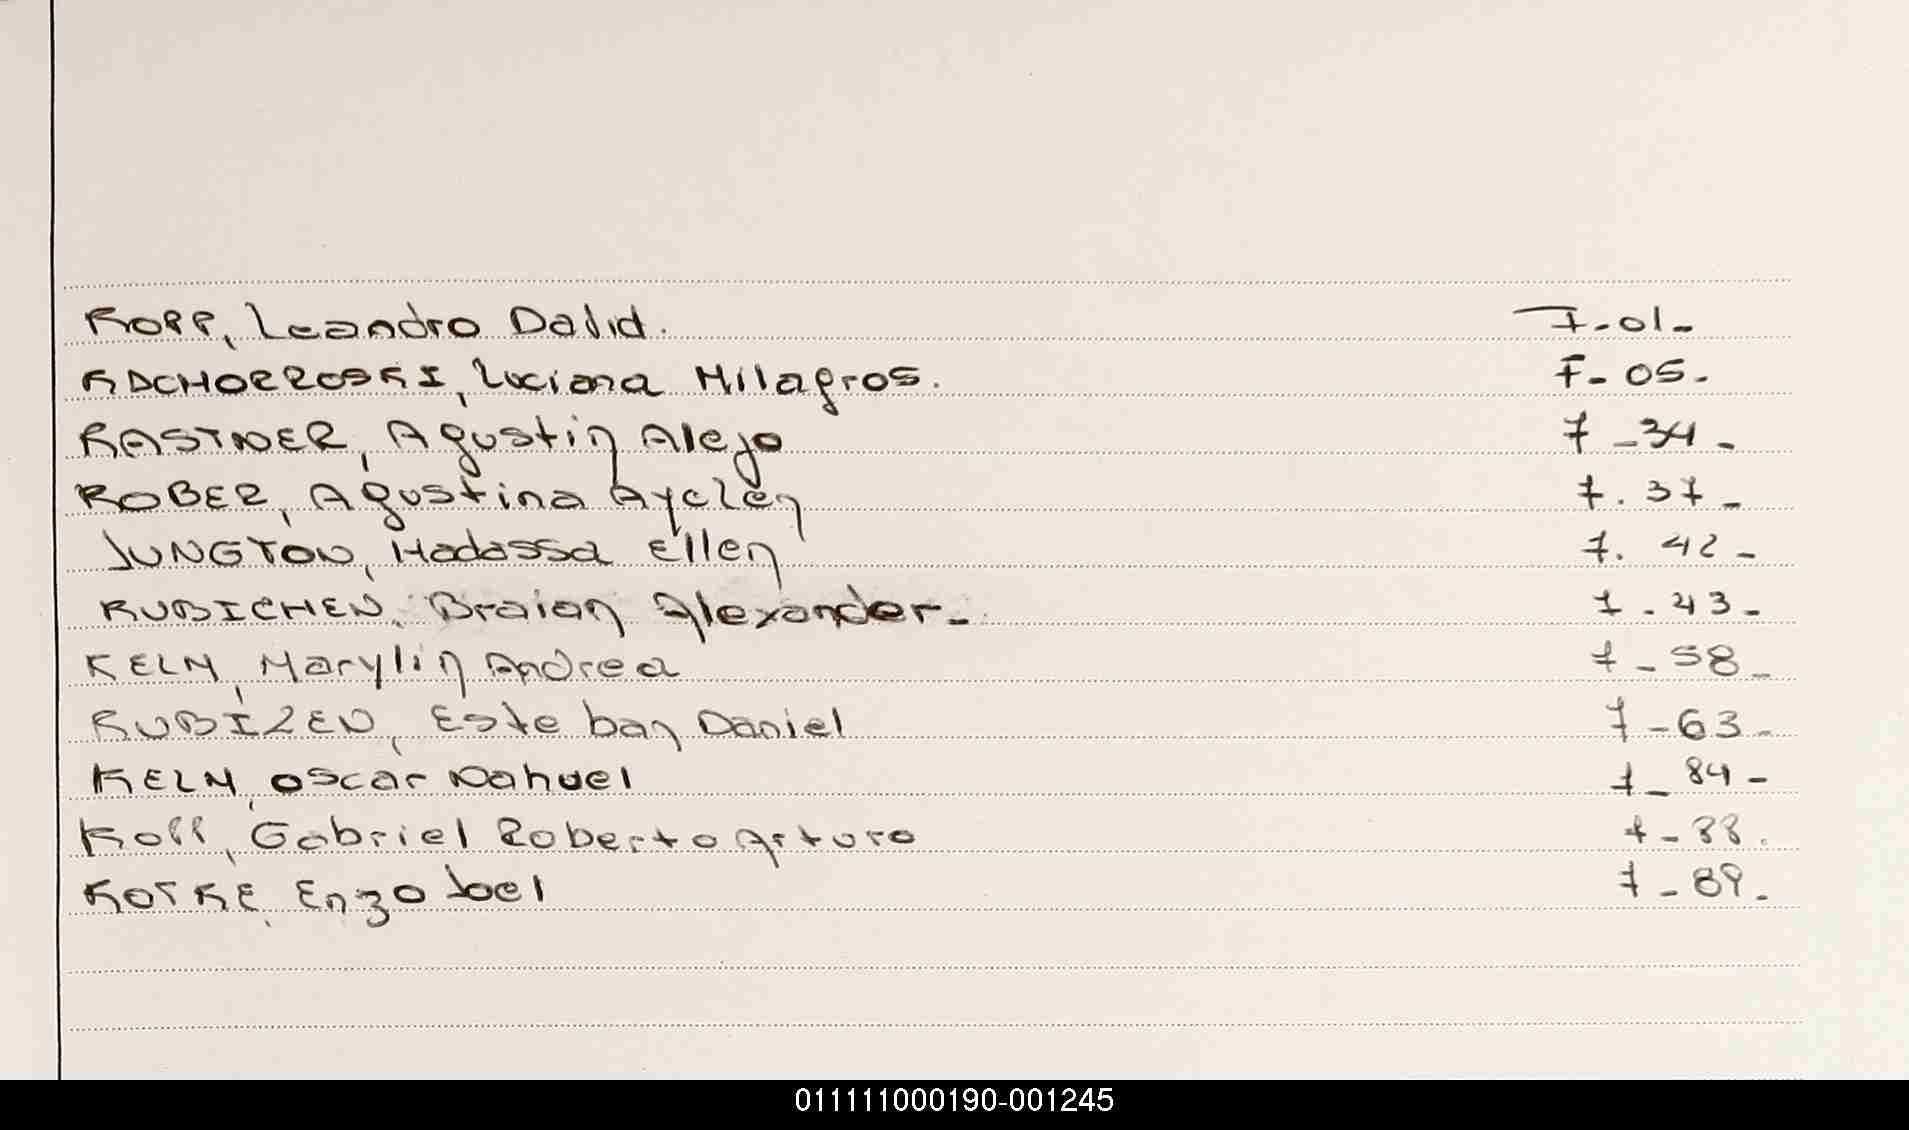 KOPP, Leandro David. 7-01-
KACHORROSKI, Luciana Milagros. 7-05-
KASTNER, Agustin Alejo 7-34-
KOBER, Agustina Aylen 7.37-
JUNGTON, Hadassa Ellen 7.42-
KUBICHEN, Braian Alexander- 7-43-
KELM, Marylin Andrea 7-58-
KUBIZEN, Esteban Daniel 7-63-
KELM, Oscar Nahuel 7-84-
Kopp, Gabriel Roberto Arturo 7-88.
KOTKE, Enzo Joel 7-89-
011111000190-001245